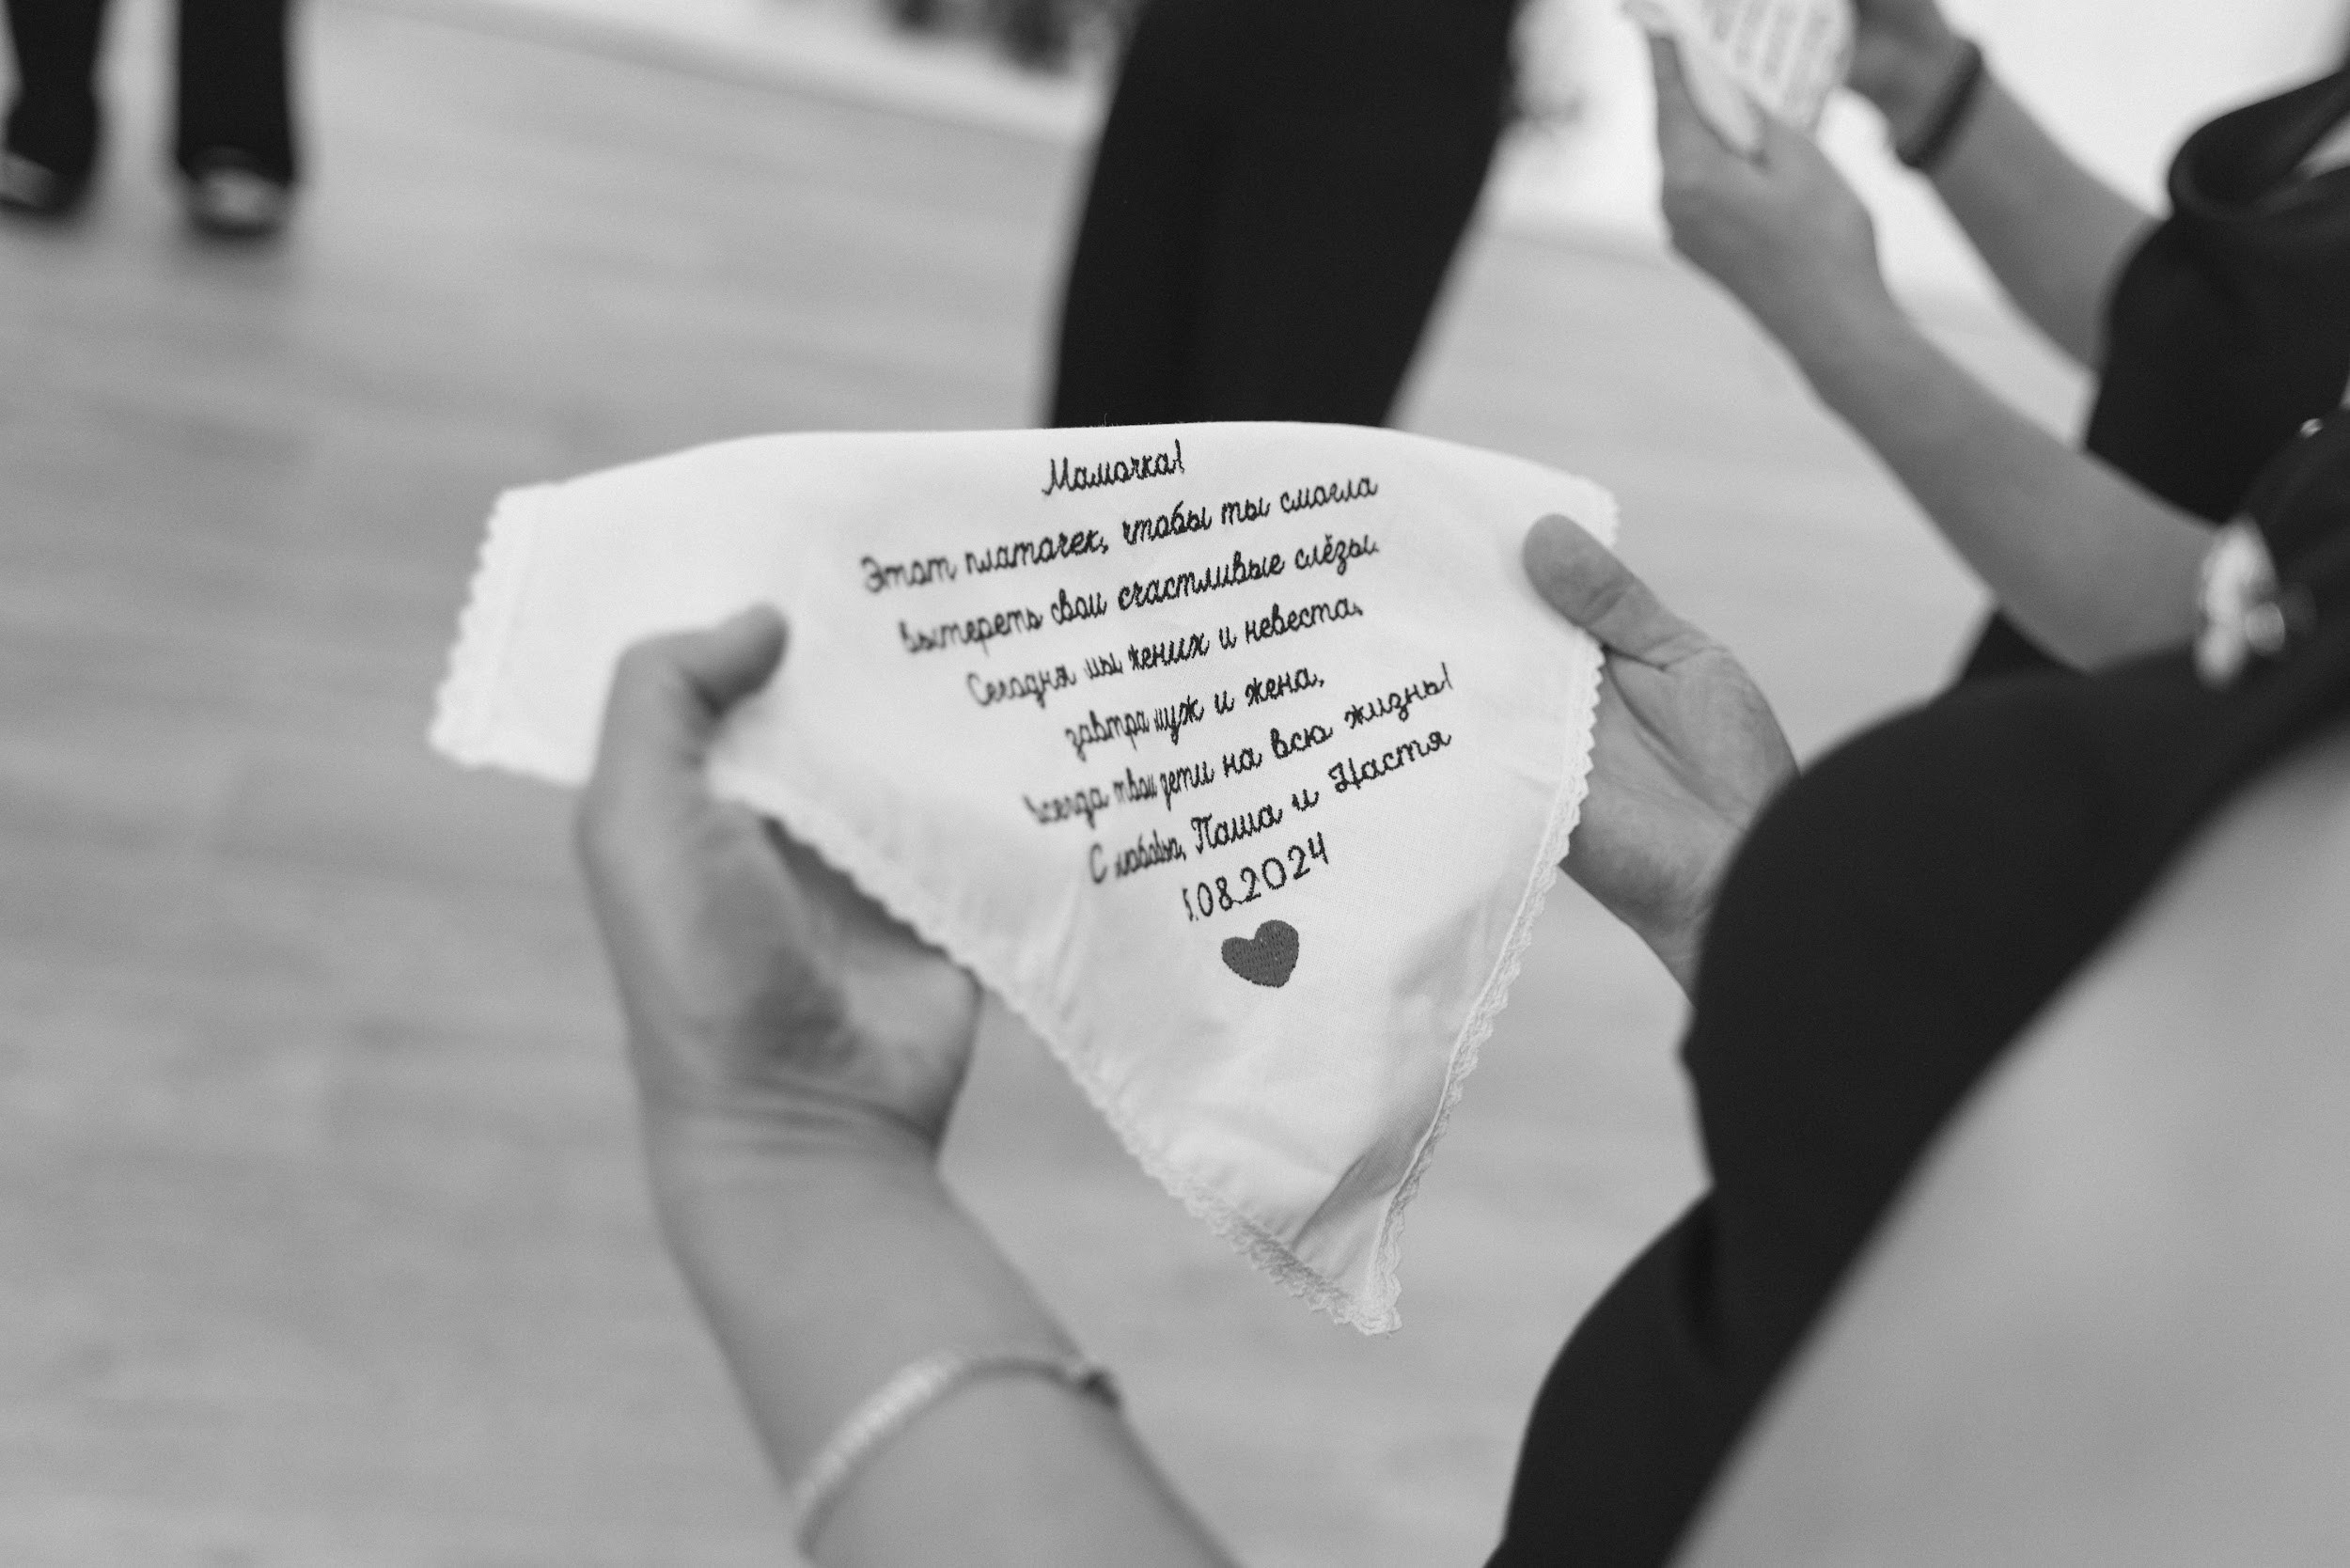 Мамочка!
Этот платочек, чтобы ты смогла
вытереть свои счастливые слёзы.
Сегодня мы жених и невеста,
завтра муж и жена,
всегда твои дети на всю жизнь!
С любовью, Паша и Настя
.08.2024